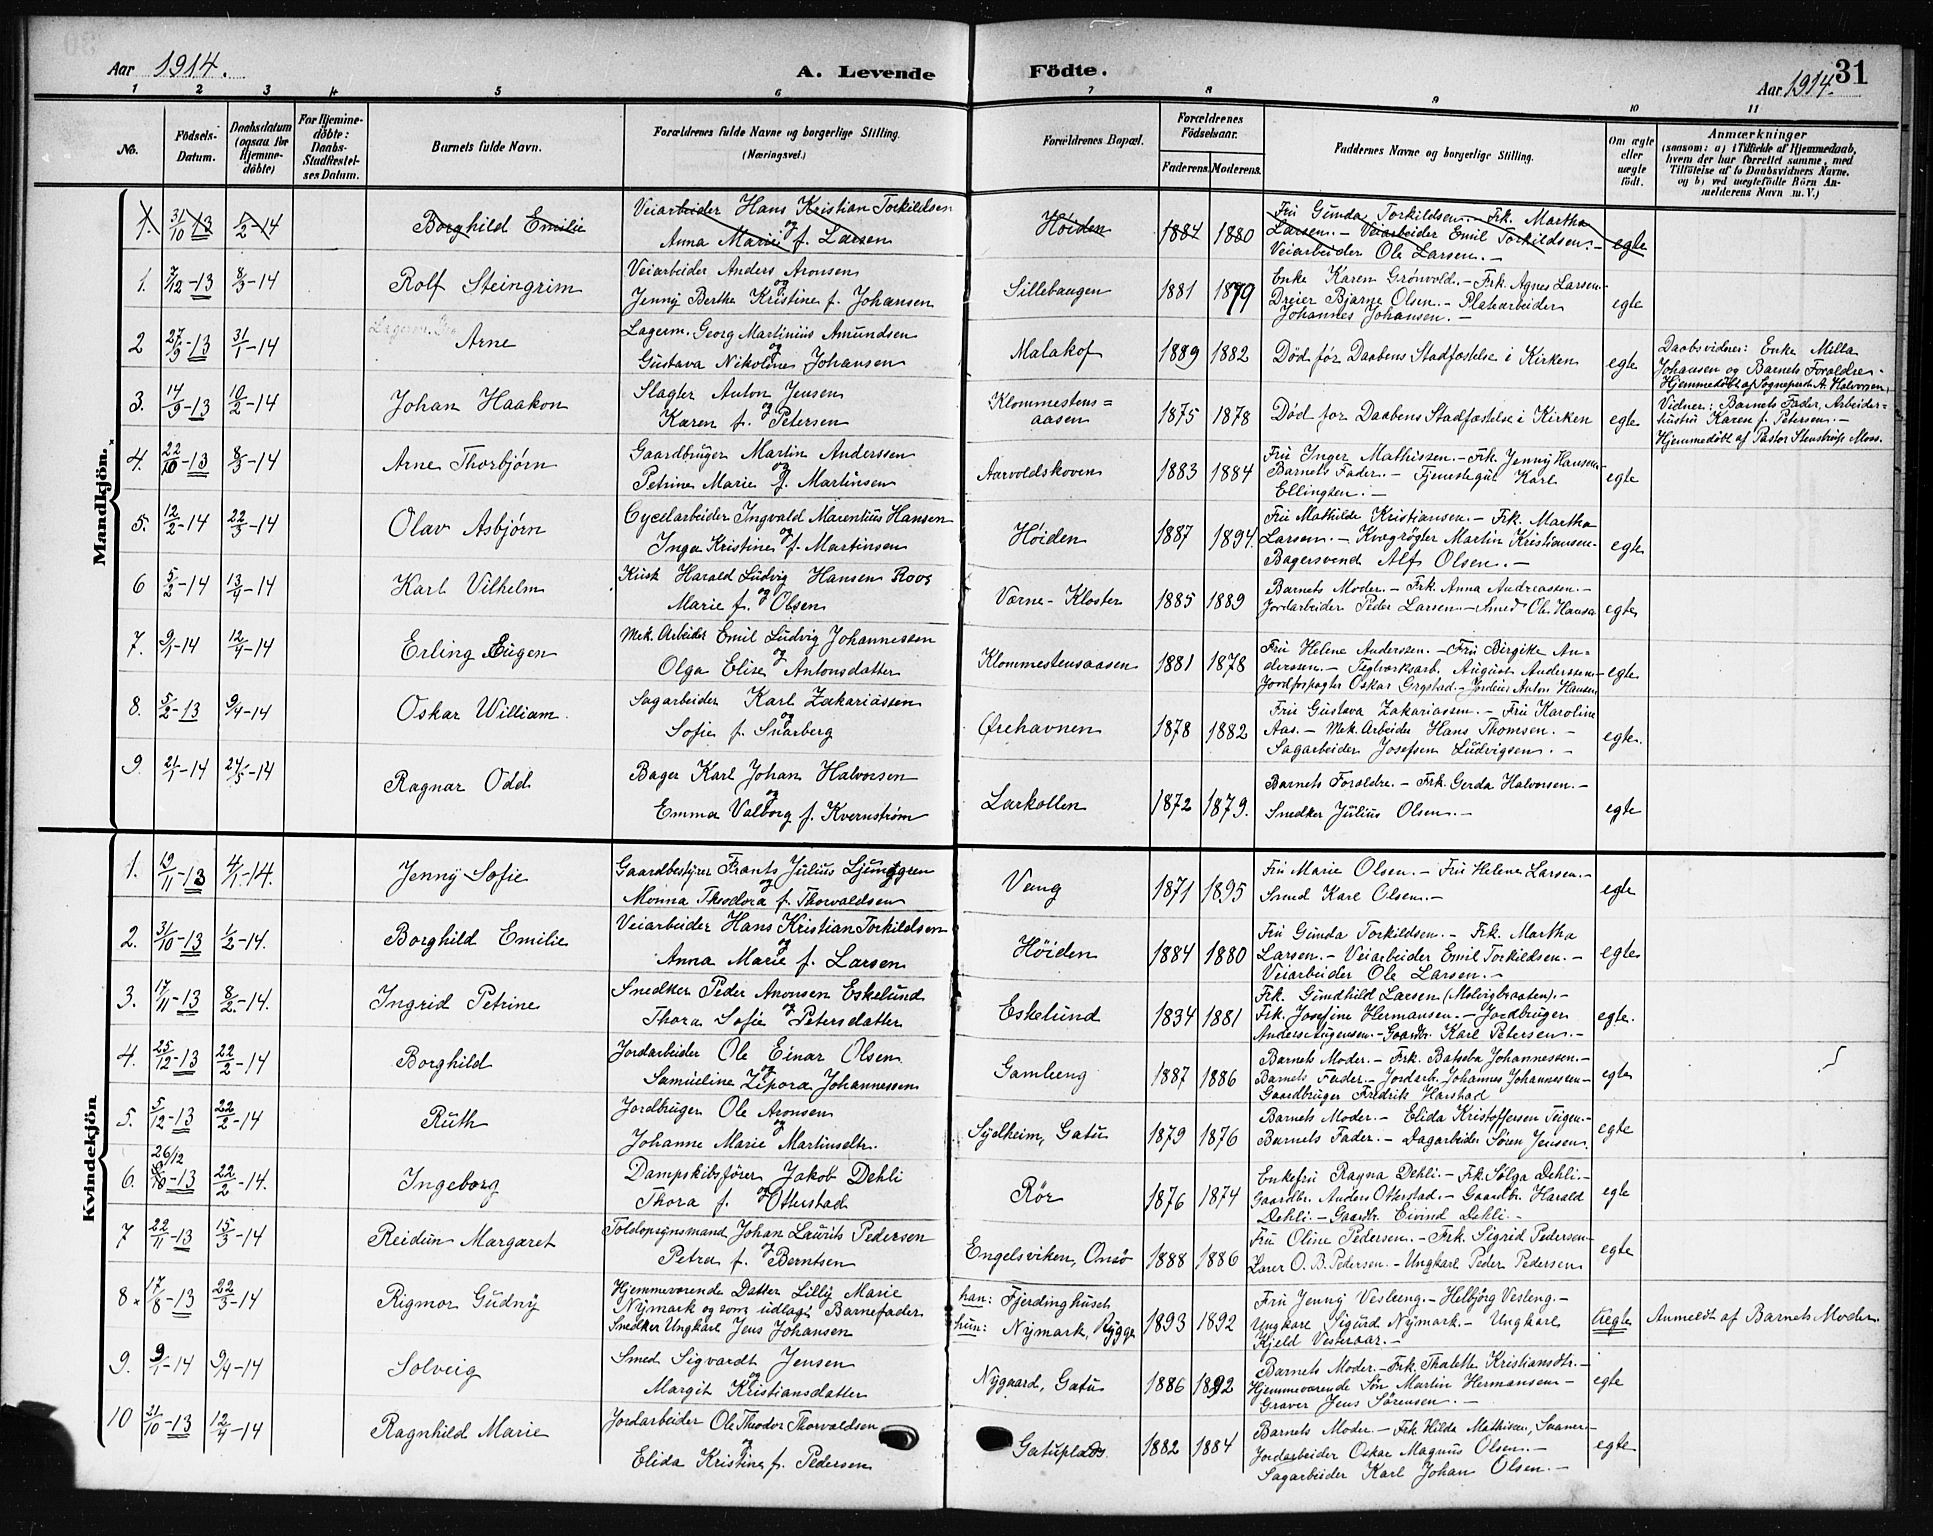 Aar 1914.
A. Levende
Födte.
Aar 1914.
31
1 2 3 4 5 6 7 8 9 10 11
No.
Födsels-Datum.
Daabsdatum (ogsaa for Hjemmedöbte)
For Hjemmedöbte: Daabs-Stadfæstelses Datum.
Barnets fulde Navn.
Forældrenes fulde Navne og borgerlige Stilling. (Næringsvei.)
Forældrenes Bopæl.
Forældrenes Födselsaar.
Faderens. Moderens.
Faddernes Navne og borgerlige Stilling.
Om ægte eller uægte födt.
Anmærkninger
(saasom: a) i Tilfælde af Hjemmedaab, hvem der har forrettet samme, med Tilföielse af to Daabsvidners Navne. og b) ved uægtefödte Börn Anmelderens Navn m. V.)
Mandkjön.
1. 31/10-13 1/2-14 Borghild Emilie Veiarbeider Hans Kristian Torkildsen og Anna Marie f. Larsen Høiden 1884 1880 Fru Gunda Torkildsen. - Frk. Martha Larsen. - Veiarbeider Emil Torkildsen. - Veiarbeider Ole Larsen. - egte
1. 7/12-13 8/3-14 Rolf Steingrim Veiarbeider Anders Aronsen og Jenny Berthe Kristine f. Johansen Sillebaugen 1881 1879 Enke Karen Grönvold. - Frk. Agnes Larsen. - Dreier Bjarne Olsen. - Platearbeider Johannes Johansen. - egte
2 27/9-13 31/1-14 Arne Lagerm. Georg Martinius Amundsen og Gustava Nikoline Johansen Malakof 1889 1882 Död før Daabens Stadfæstelse i Kirken egte Daabsvidner: Enke Milla Johansen og Barnets Forældre. - Hjemmedöbt af Sognepræst A. Halvorsen.
3. 14/9-13 10/2-14 Johan Haakon Slagter Anton Jensen og Karen f. Petersen Klommestens=aasen 1875 1878 Död før Daabens Stadfæstelse i Kirken egte Vidner: Barnets Fader, Arbeiderhustru Karen f. Petersen. - Hjemmedöbt af Pastor Stenstrup Moss.
4. 22/10-13 8/3-14 Arne Thorbjørn Gaardbruger Martin Anderssen og Petrine Marie f. Martinsen Aarvoldskoven 1883 1884 Fru Inger Mathissen. - Frk. Jenny Hansen. - Barnets Fader. - Tjenestegut Karl Ellingsen. - egte
5. 12/2-14 22/3-14 Olav Asbjørn Cycelarbeider Ingvald Marentius Hansen og Inga Kristine f. Martinsen Høiden 1887 1894. Fru Mathilde Kristiansen. - Frk. Martha Larsen. - Kvægrögter Martin Kristiansen. - Bagersvend Alf Olsen. - egte
6 5/2-14 13/4-14 Karl Vilhelm Kusk Harald Ludvig Hansen Roos og Marie f. Olsen Værne-Kloster 1885 1889 Barnets Moder. - Frk. Anna Andreassen. - Jordarbeider Peder Larsen. - Smed Ole Hansen egte
7. 9/1-14 12/4-14 Erling Eugen Mek. Arbeider Emil Ludvig Johannessen og Olga Elise Antonsdatter Klommestensaasen 1881 1878 Fru Helene Anderssen. - Fru Birgitte Anderssen. - Teglverksarb. August Anderssen. - Jordforpagter Oskar Grystad. - Jordeier Anton Hansen egte
8. 5/2-13 9/4-14 Oskar William. Sagarbeider Karl Zakariassen og Sofie f. Snarberg Ørehavnen 1878 1882 Fru Gustava Zakariassen. - Fru Karoline Aas. - Mek. Arbeider Hans Thomsen. - Sagarbeider Josefsen Ludvigsen. - egte.
9. 21/1-14 24/5-14 Ragnar Odd Bager Karl Johan Halvorsen og Emma Valborg f. Kvernström Larkollen 1872 1879. Barnets Forældre. - Frk. Gerda Halvorsen. - Snedker Julius Olsen. - egte
Kvindekjön
1. 19/11-13 4/1-14. Jenny Sofie Gaardbestyrer Frants Julius Ljunggren og Monna Theodora f. Thorvaldsen Veng 1871 1895 Fru Marie Olsen. - Fru Helene Larsen. - Smed Karl Olsen. - egte
2. 31/10-13 1/2-14. Borghild Emilie Veiarbeider Hans Kristian Torkildsen og Anna Marie f. Larsen Höiden 1884 1880 Fru Gunda Torkildsen. - Frk. Martha Larsen. - Veiarbeider Emil Torkildsen. - Veiarbeider Ole Larsen. - egte
3. 17/11-13 8/2-14. Ingrid Petrine Snedker Peder Aronsen Eskelund og Thora Sofie Petersdatter Eskelund 1834 1881 Frk. Gundhild Larsen (Molvigbraaten). - Frk. Josefine Hermansen. - Jordbruger Anders Mogensen. - Gaardbr. Karl Petersen. - egte.
4. 25/12-13 22/2-14 Borghild Jordarbeider Ole Einar Olsen og Samueline Zipora Johannessen Gamleng 1887 1886 Barnets Moder. - Frk. Batseba Johannessen. - Barnets Fader. - Jordarb. Johannes Johannessen - Gaardbruger Fredrik Harstad egte
5. 5/12-13 22/2-14 Ruth Jordbruger Ole Aronsen og Johanne Marie Martinsdtr. Sydlheim, Gatu 1879 1876 Barnets Moder. - Elida Kristoffersen Teigen. - Barnets Fader. - Dagarbeider Sören Jensen. egte
6. 26/12 -13 22/2-14. Ingeborg Dampskibsfører Jakob Dehli og Thora f. Otterstad Rör 1876 1874 Enkefru Ragna Dehli. - Frk. Solga Dehli. - Gaardbr. Anders Otterstad. - Gaardbr. Harald Dehli. - Gaardbr. Eivind Dehli. - egte
7 22/11-13 15/3-14 Reidun Margaret Toldopsynsmand Johan Laurits Pedersen og Petra f. Berntsen Engelsviken, Onsö 1888 1886 Fru Oline Pedersen. - Frk. Sigrid Pedersen - Lærer O. B. Pedersen. - Ungkarl Peder Pedersen egte
8 17/8-13 22/3-14 Rigmor Gudny Hjemmeværende Datter Lilly Marie Nymark og som udlagt Barnefader Snedker Ungkarl Jens Johansen han: Fjerdinghuset hun: Nymark, Rygge 1893 1892 Fru Jenny Vesleng. - Helbjørg Vesleng. - Ungkarl Sigurd Nymark. - Ungkarl Kjeld Vesteraar. - Uegte Anmeldt af Barnets Moder.
9. 9/1-14 9/4-14 Solveig Smed Sigvardt Jensen og Margit Kristiansdatter Nygaard, Gatu 1886 1892 Barnets Moder. - Frk. Thalette Kristiansdtr. - Hjemmeværende Søn Martin Hermansen - Graver Jens Sörensen. - egte
10 31/10-13 12/4-14 Ragnhild Marie Jordarbeider Ole Theodor Thorvaldsen og Elida Kristine f. Pedersen Gatuplads. 1882 1884 Barnets Moder. - Frk. Hilda Mathisen, - Jordarbeider Oskar Magnus Olsen. - Sagarbeider Karl Johan Olsen. - egte